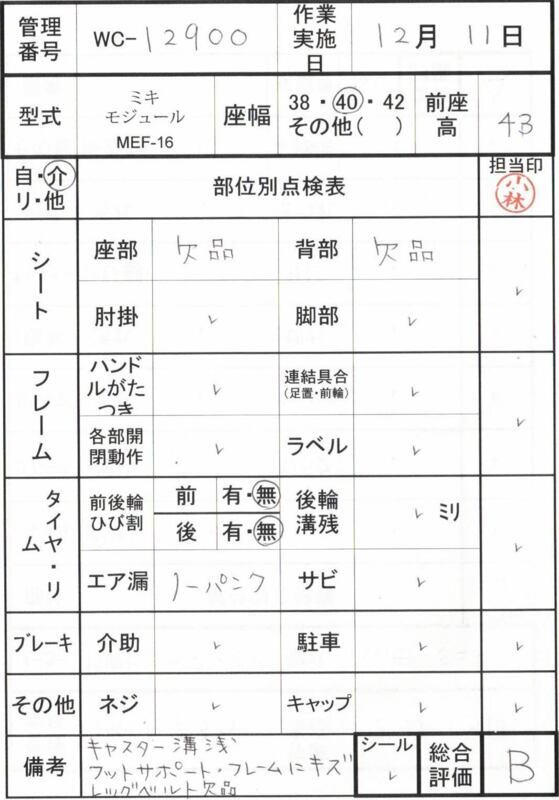 管理番号 WC-12900 作業実施日 12月11日
型式 ミキ モジュール MEF-16 座幅 38・40・42 その他( ) 前座高 43
自・介 リ・他 部位別点検表 担当印 小林
シート 座部 欠品 背部 欠品
肘掛 ✓ 脚部 ✓ ✓
フレーム ハンドルがたつき ✓ 連結具合 (足置・前輪) ✓
各部開閉動作 ✓ ラベル ✓ ✓
タイヤ・リム 前後輪ひび割 前 有・無 後輪溝残 ✓ ミリ
後 有・無
エア漏 ノーパンク サビ ✓ ✓
ブレーキ 介助 ✓ 駐車 ✓ ✓
その他 ネジ ✓ キャップ ✓ ✓
備考 キャスター溝浅 シール ✓ 総合評価 B
フットサポート・フレームにキズ
レッグベルト欠品